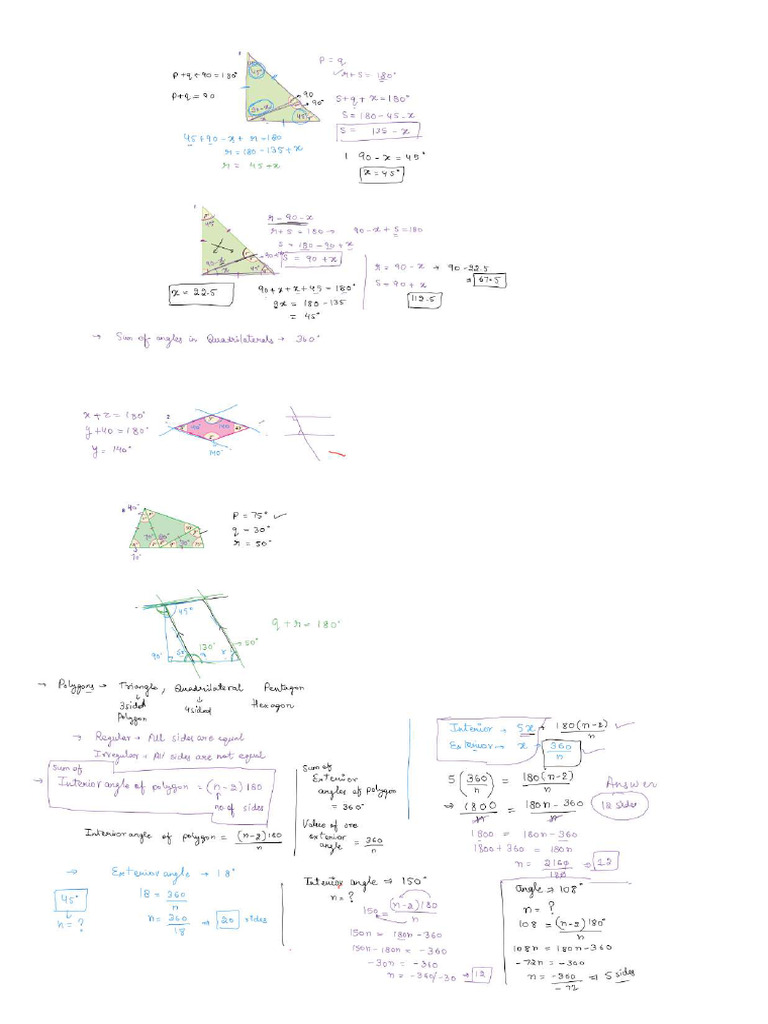 P+q+90=180°
P+q=90
P=q
r+s=180°
s+q+x=180°
s=180-45-x
s= 135-x
90-x=45°
x=45°
45+90-x+r=180
r=180-135+x
r= 45+x
45°
90
90°
45°
r=90-x
r+s=180→ 90-x+s=180
s=180-90+x
s=90+x
r=90-x → 90-22.5
= 67.5
s=90+x
112.5
x=22.5
90+x+x+45=180°
2x=180-135
=45°
→ Sum of angles in Quadrilaterals → 360°
x+z=180°
y+40=180°
y=140°
140°
P=75° ✓
q=30°
r=50°
45°
90°
50°
130°
50°
q+r=180°
→ Polygons → Triangle, Quadrilateral Pentagon
3sided 4sided Hexagon
Polygon
→ Regular → All sides are equal
Irregular → All sides are not equal
Sum of
→ Interior angle of polygon = (n-2)180
no of sides
Interior angle of polygon = (n-2)180/n
Sum of
Exterior
angles of polygon
= 360°
Value of one
exterior
angle = 360/n
Interior → 5x → 180(n-2)/n
Exterior → x → 360/n
5(360/n) = 180(n-2)/n
⇒ 1800/n = 180n-360/n
1800 = 180n-360
1800+360 = 180n
n = 2160/180 ⇒ 12
Answer
12 sides
→ Exterior angle → 18°
18 = 360/n
n = 360/18 → 20 sides
45°
n=?
Interior angle ⇒ 150°
n=?
150 = (n-2)180/n
150n = 180n-360
150n-180n = -360
-30n = -360
n = -360/-30 → 12
angle ⇒ 108°
n=?
108 = (n-2)180°/n
108n = 180n-360
-72n = -360
n = -360/-72 ⇒ 5 sides